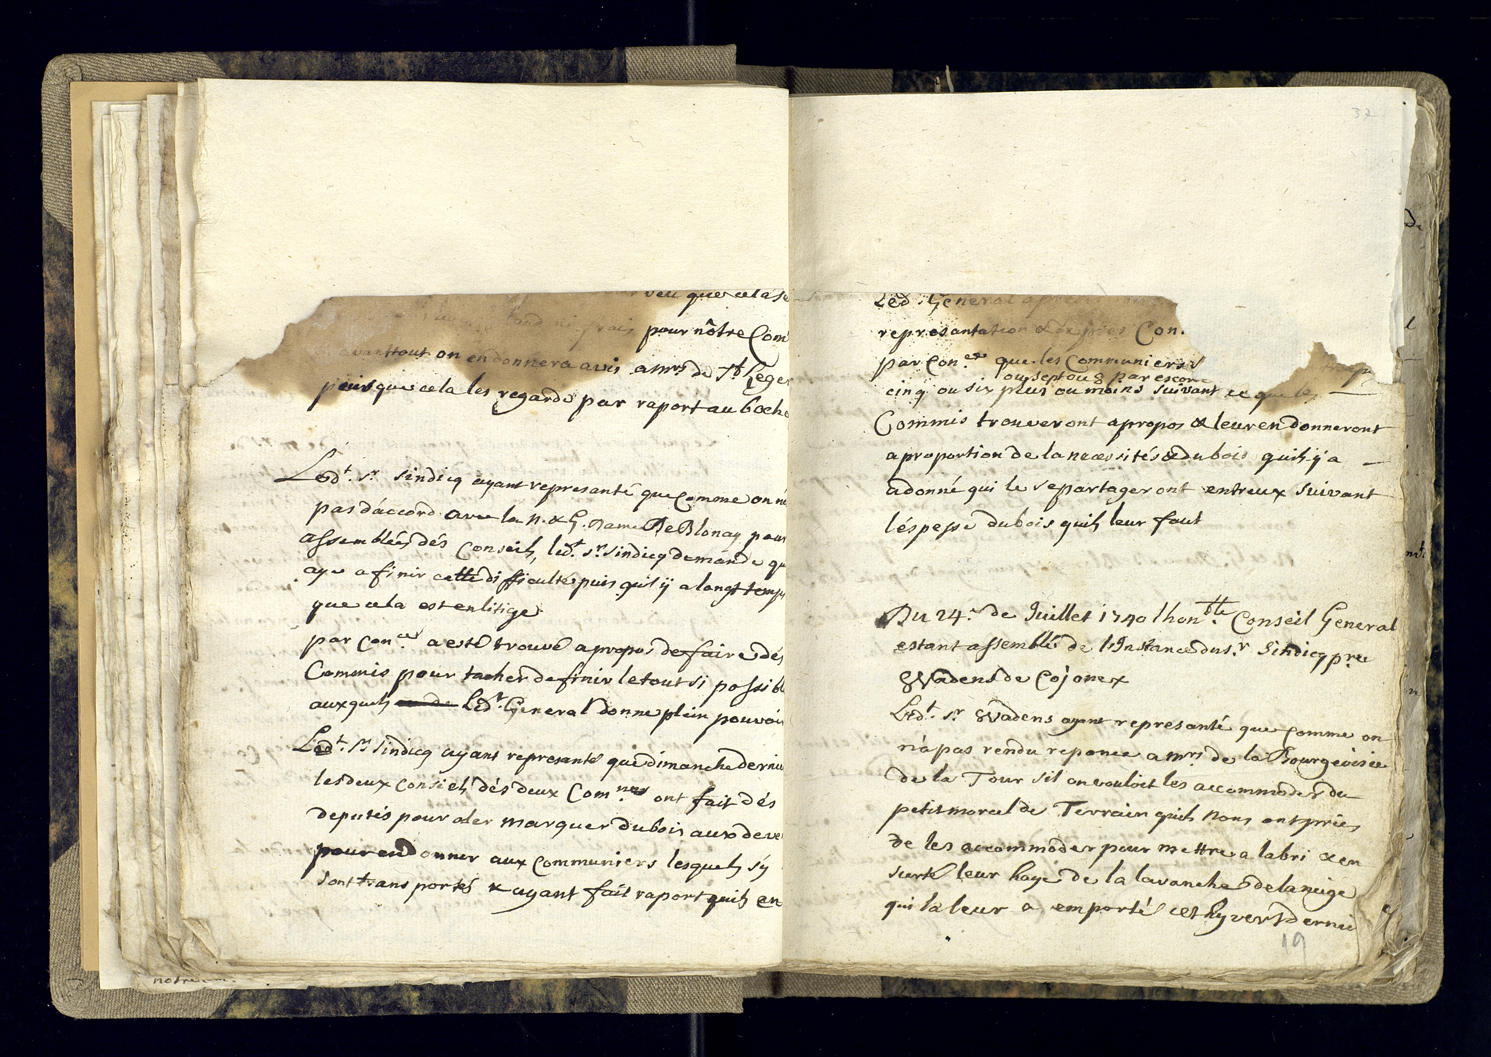 veu que cela se
frais pour nôtre Com
avant tout on en donnera avis a mrs de St Leger
puis que cela les regarde par raport au boche
Ledt. sr. sindicq ayant representé que comme on n
pas dáccord avec la n. & G. Dame De Blonay pour
assemblées dés Conseils, ledt sr sindicq demande qu
aye a finir cette difficulté puis quil ÿ a longt temps
que cela est en litige.
par Conces a esté trouvé apropos de faire dés
Commis pour tacher de finir le tout si possibl
auxquels Ledt. General donne plein pouvoi
Ledt. sr sindicq ayant representé que dimanche dernie
les deux Conseils dés deux Comnes ont fait dés
deputés pour aler marquer du bois aux deve
pour en donner aux Communiers lesquels s'ÿ
sont transportés & ayant fait raport quils en
37
Led. General apres
representation Con.
par Conces que les Communiers
ou sept ou 8 par escom
cinq ou six plus ou moins suivant ce que les
Commis trouveront apropos & leur en donneront
a proportion de la necessités & du bois quil ÿ a
a donné qui le repartageront entreux suivant
léspesse du bois quils leur faut
Du 24.e de Juillet 1740 lhonble. Conseil General
estant assemblé de l'Instance du sr. Sindicq pre
Wadens de Cojonex
Ledt. sr Wadens ayant representé que comme on
n'a pas rendu reponce a mrs de la Bourgeoisie
de la Tour sil on vouloit les accommoder du
petit morcel de Terrain quils nous ont priés
de les accommoder pour mettre a labri & en
surté leur haye de la lavanche de la neige
qui la leur a emporté cet hyvert dernie
19
notre